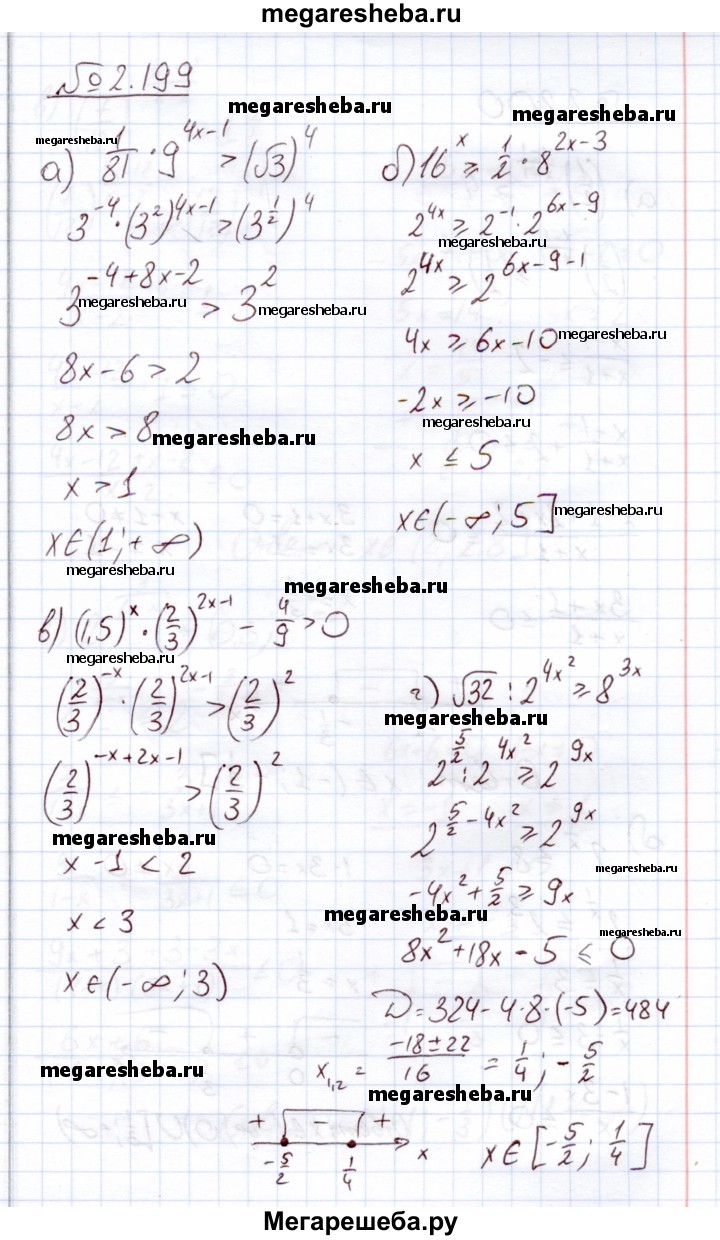 megaresheba.ru
№ 2.199
megaresheba.ru
megaresheba.ru
megaresheba.ru
а) 1/81 · 9^(4x-1) > (√3)^4
3^(-4) · (3^2)^(4x-1) > (3^(1/2))^4
3^(-4+8x-2) > 3^2
megaresheba.ru
megaresheba.ru
8x-6 > 2
8x > 8
megaresheba.ru
x > 1
x∈(1; +∞)
megaresheba.ru
б) 16^x ⩾ 1/2 · 8^(2x-3)
2^(4x) ⩾ 2^(-1) · 2^(6x-9)
megaresheba.ru
2^(4x) ⩾ 2^(6x-9-1)
4x ⩾ 6x-10
megaresheba.ru
-2x ⩾ -10
megaresheba.ru
x ≤ 5
x∈(-∞; 5]
megaresheba.ru
megaresheba.ru
в) (1,5)^x · (2/3)^(2x-1) - 4/9 > 0
megaresheba.ru
(2/3)^(-x) · (2/3)^(2x-1) > (2/3)^2
(2/3)^(-x+2x-1) > (2/3)^2
megaresheba.ru
x-1 < 2
x < 3
x∈(-∞; 3)
megaresheba.ru
г) √32 : 2^(4x^2) ⩾ 8^(3x)
megaresheba.ru
2^(5/2) : 2^(4x^2) ⩾ 2^(9x)
2^(5/2-4x^2) ⩾ 2^(9x)
megaresheba.ru
-4x^2 + 5/2 ⩾ 9x
megaresheba.ru
megaresheba.ru
8x^2+18x-5 ⩽ 0
D=324-4·8·(-5)=484
x1,2 = (-18±22)/16 = 1/4; -5/2
megaresheba.ru
+ - + x
-5/2 1/4
x∈[-5/2; 1/4]
Мегарешеба.ру